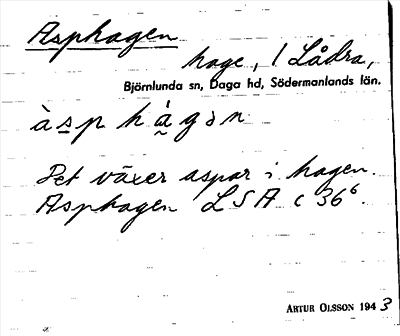 Asphagen
hage, / Lådra,
Björnlunda sn, Daga hd, Södermanlands län.
àsp hágən
Det växer aspar i hagen.
Asphagen LSA c 36⁶.
ARTUR OLSSON 1943